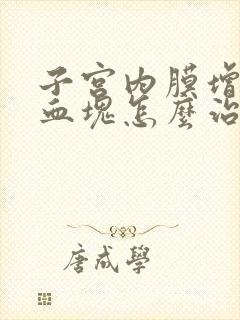 子宫内膜增
血塊怎麼治
唐咸學